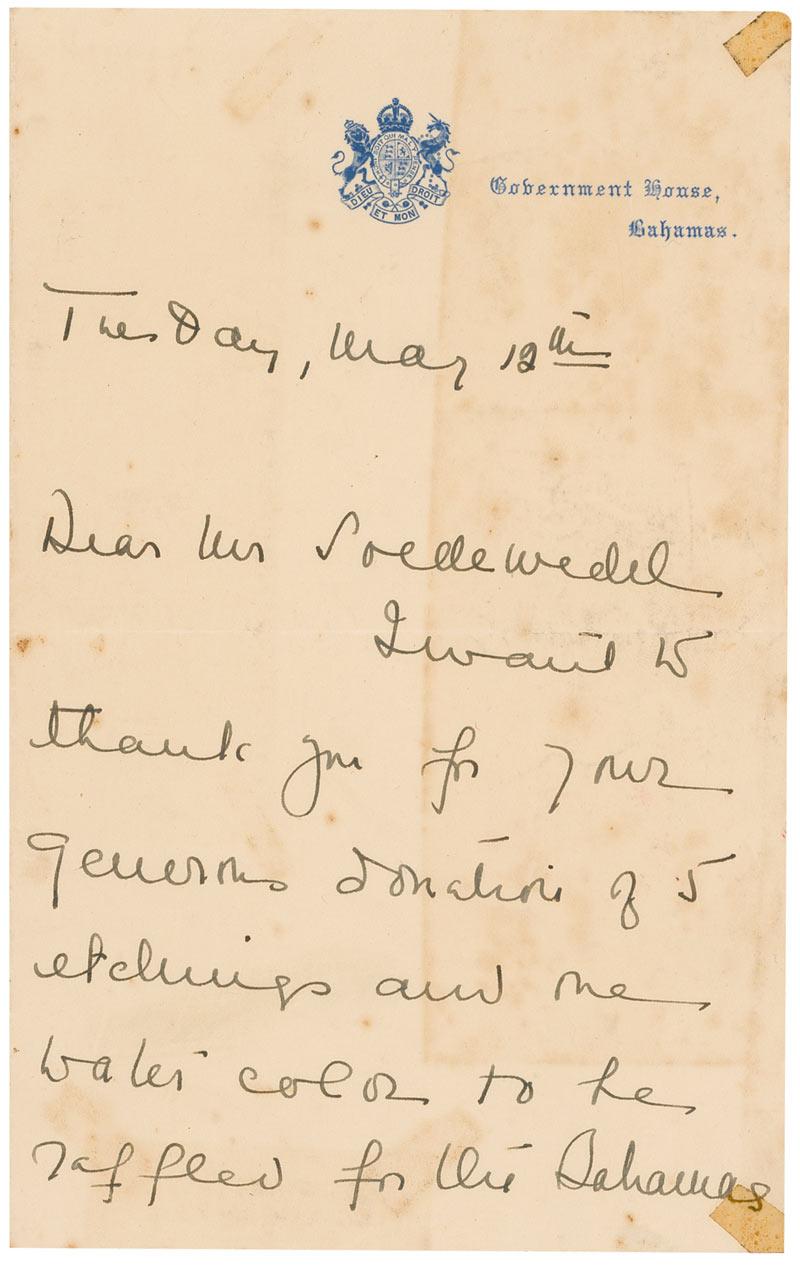 HONI SOIT QUI MAL Y PENSE
DIEU ET MON DROIT
Government House,
Bahamas.
Tuesday, May 12th
Dear Mr Soedewedel
I want to
thank you for your
generous donation of 5
etchings and one
water color to be
raffled for the Bahamas